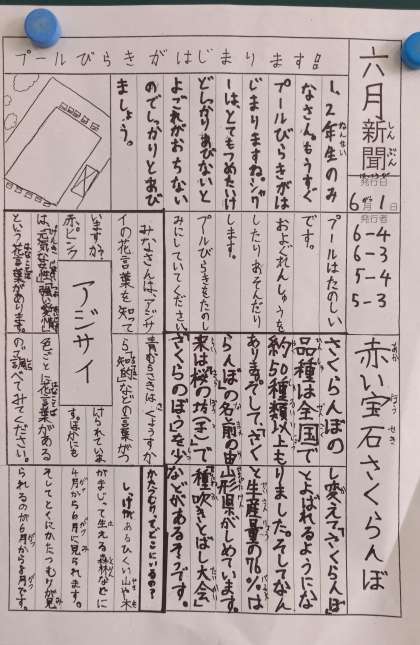 六月新聞
発行日
6月1日
発行者
6-4
6-3
5-4
5-3
プールびらきがはじまります!!
1、2年生のみ
なさん。もうすぐ
プールびらきがは
じまりますね。シャワ
ーは、とてもつめたいけ
どしっかりあびないと
よごれがおちない
のでしっかりとあび
ましょう。
プールはたのしい
です。
およぐれんしゅうを
したりおそんだり
します。
プールびらきをたのし
みにしていてください。
赤い宝石さくらんぼ
さくらんぼの
品種は全国で
約50種類以上も
あります。そして、さく
らんぼの名前の由
来は桜の坊(子)で
さくらのぼうを少
し変えて「さくらんぼ」
とよばれるようにな
りました。そしてなん
と生産量の76%は
山形県がしめています。
「種吹きとばし大会」
などがあるそうです。
アジサイ
みなさんは、アジサ
イの花言葉を知って
いますか?
赤、ピンク
は、「元気な女性」「強い愛情」
という花言葉があります。
青むらさきは
ら、「知的」などの言葉がつ
けられていま
す。ほかにも
色ごとに花言葉がある
ので調べてみてください。
かたつむりってどこにいるの?
しっ気があるひくい山や木
がまじって生える森林などに
4月から6月に見られます。
そしてとくにかたつむりが見
られるのが6月から7月です。